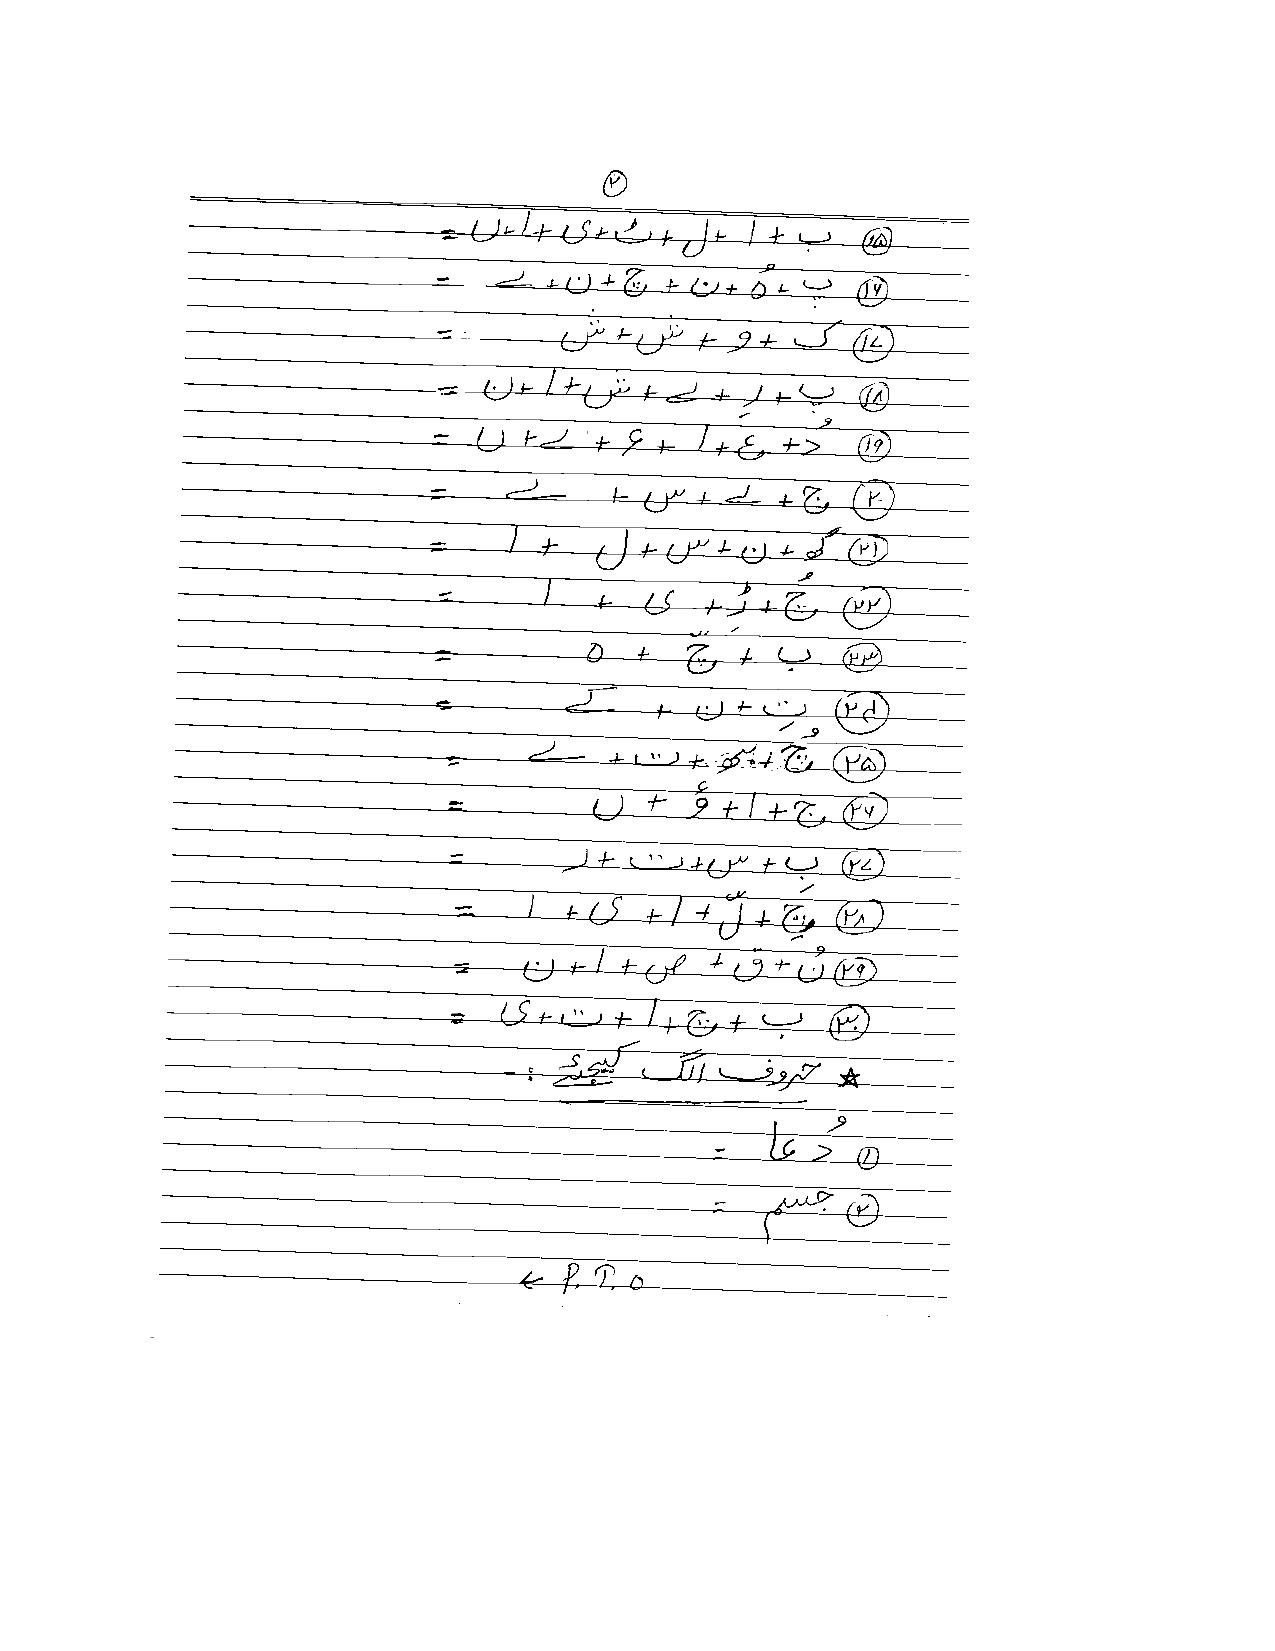 ۲
۱۵ ب + ا + ل + ٹ + ی + ا + ں =
۱۶ پ + ہُ + ن + چ + ن + ے =
۱۷ ک + و + ش + ش =
۱۸ پ + رِ + ے + ش + ا + ن =
۱۹ دُ + ع + ا + ء + ے + ں =
۲۰ ج + ے + س + ے =
۲۱ گھ + ن + س + ل + ا =
۲۲ چُ + ڑِ + ی + ا =
۲۳ ب + چّ + ہ =
۲۴ تِ + ن + کے =
۲۵ چُ + بھ + ت + ے =
۲۶ ج + ا + ؤ + ں =
۲۷ بِ + س + ت + ر =
۲۸ چِ + لّ + ا + ی + ا =
۲۹ نُ + ق + ص + ا + ن =
۳۰ ب + چ + ا + ت + ی =
★ حروف الگ کیجئے :-
۱ دُعا =
۲ جسم =
← P.T.O